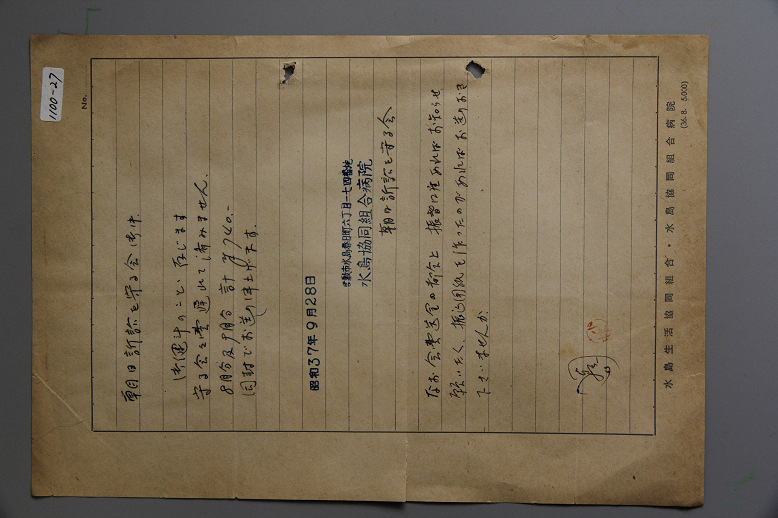 1100-27
No.
朝日訴訟を守る会御中
御健斗のことと存じます
守る会々費遅れて済みません.
8月分及9月分 計 ¥740.-
同封でお送り申上げます.
昭和37年9月28日
倉敷市水島春日町六丁目一七四番地
水島協同組合病院
朝日訴訟を守る会
なお会費送金の都合上 振替口座あればお知らせ
願いたく、振込用紙を作ったのがあればお送りおき
下さいませんか
水島生活協同組合・水島協同組合病院
(36. 8. 5,000)